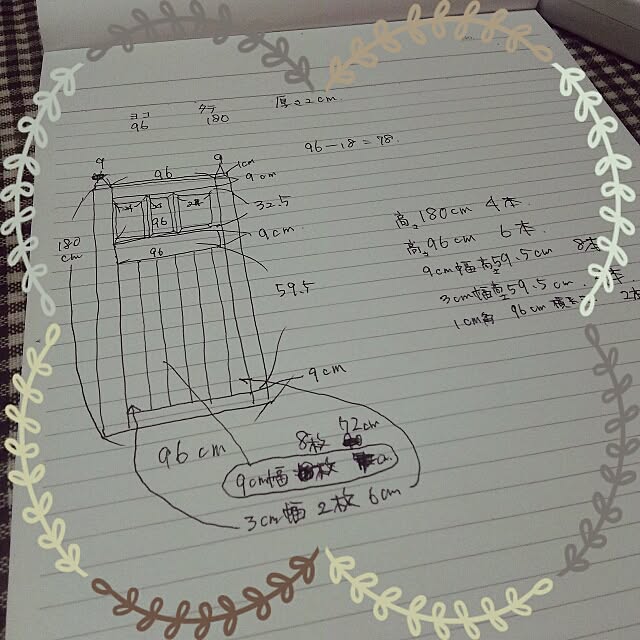 ヨコ タテ 厚さ2cm
96 180
96-18=78
9 96 9 1cm
9cm
32.5
96
180
cm
9cm
96
59.5
9cm
96cm
8枚 72cm
9cm幅 枚 cm
3cm幅 2枚 6cm
高さ180cm 4本
高さ96cm 6本
9cm幅高さ59.5cm 8本
3cm幅高さ59.5cm 本
1cm角 96cm 2本